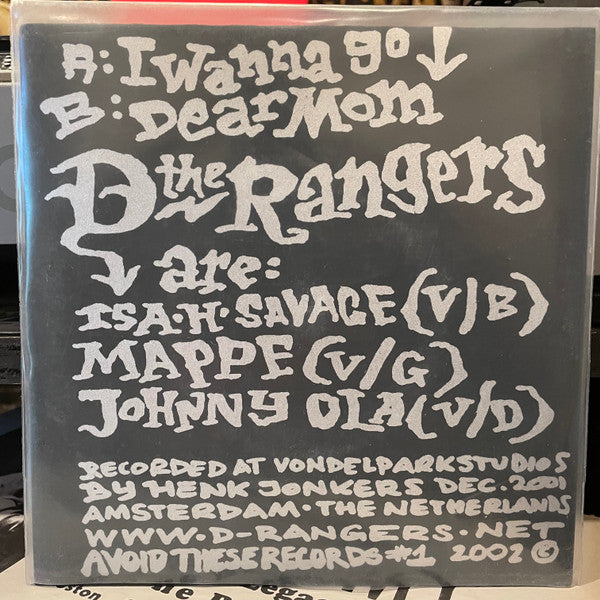 A: I wanna go ↓
B: Dear Mom
the D~Rangers
are:
ISA·H·SAVAGE (V/B)
MAPPE (V/G)
JOHNNY OLA (V/D)
RECORDED AT VONDELPARKSTUDIOS
BY HENK JONKERS DEC. 2001
AMSTERDAM · THE NETHERLANDS
WWW.D-RANGERS.NET
AVOID THESE RECORDS #1 2002 ©